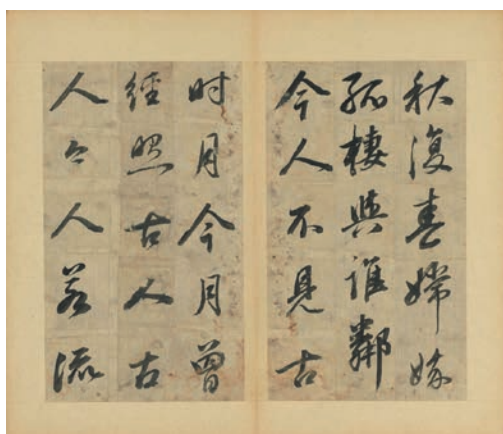 秋復春嫦娥
孤棲與誰鄰
今人不見古
时月今月曾
經照古人古
人今人若流